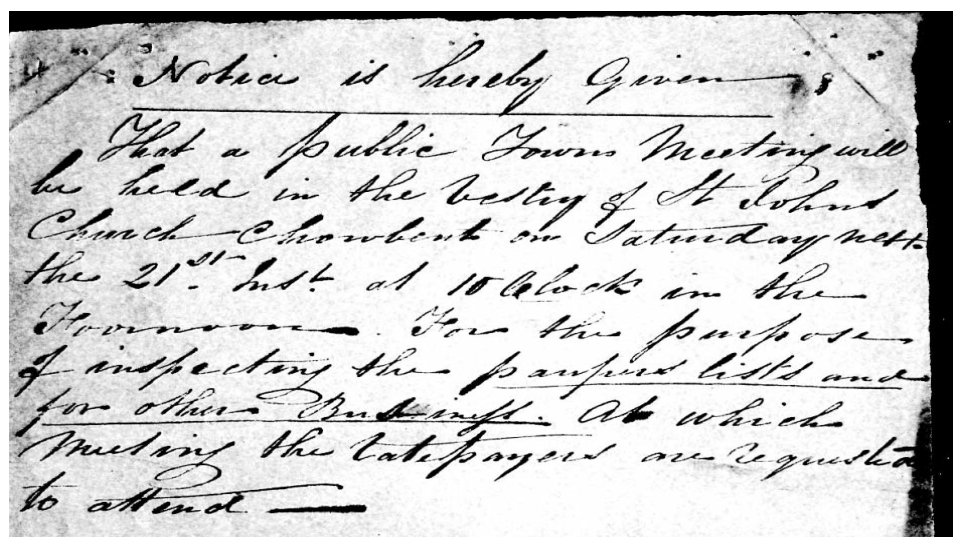 Notice is hereby Given
That a public Towns Meeting will
be held in the Vestry of St Johns
Church Chowbent on Saturday next
the 21st Inst. at 10 OClock in the
Foornoon. For the purpose
of inspecting the paupers lists and
for other Business. At which
Meeting the Ratepayers are requested
to attend —